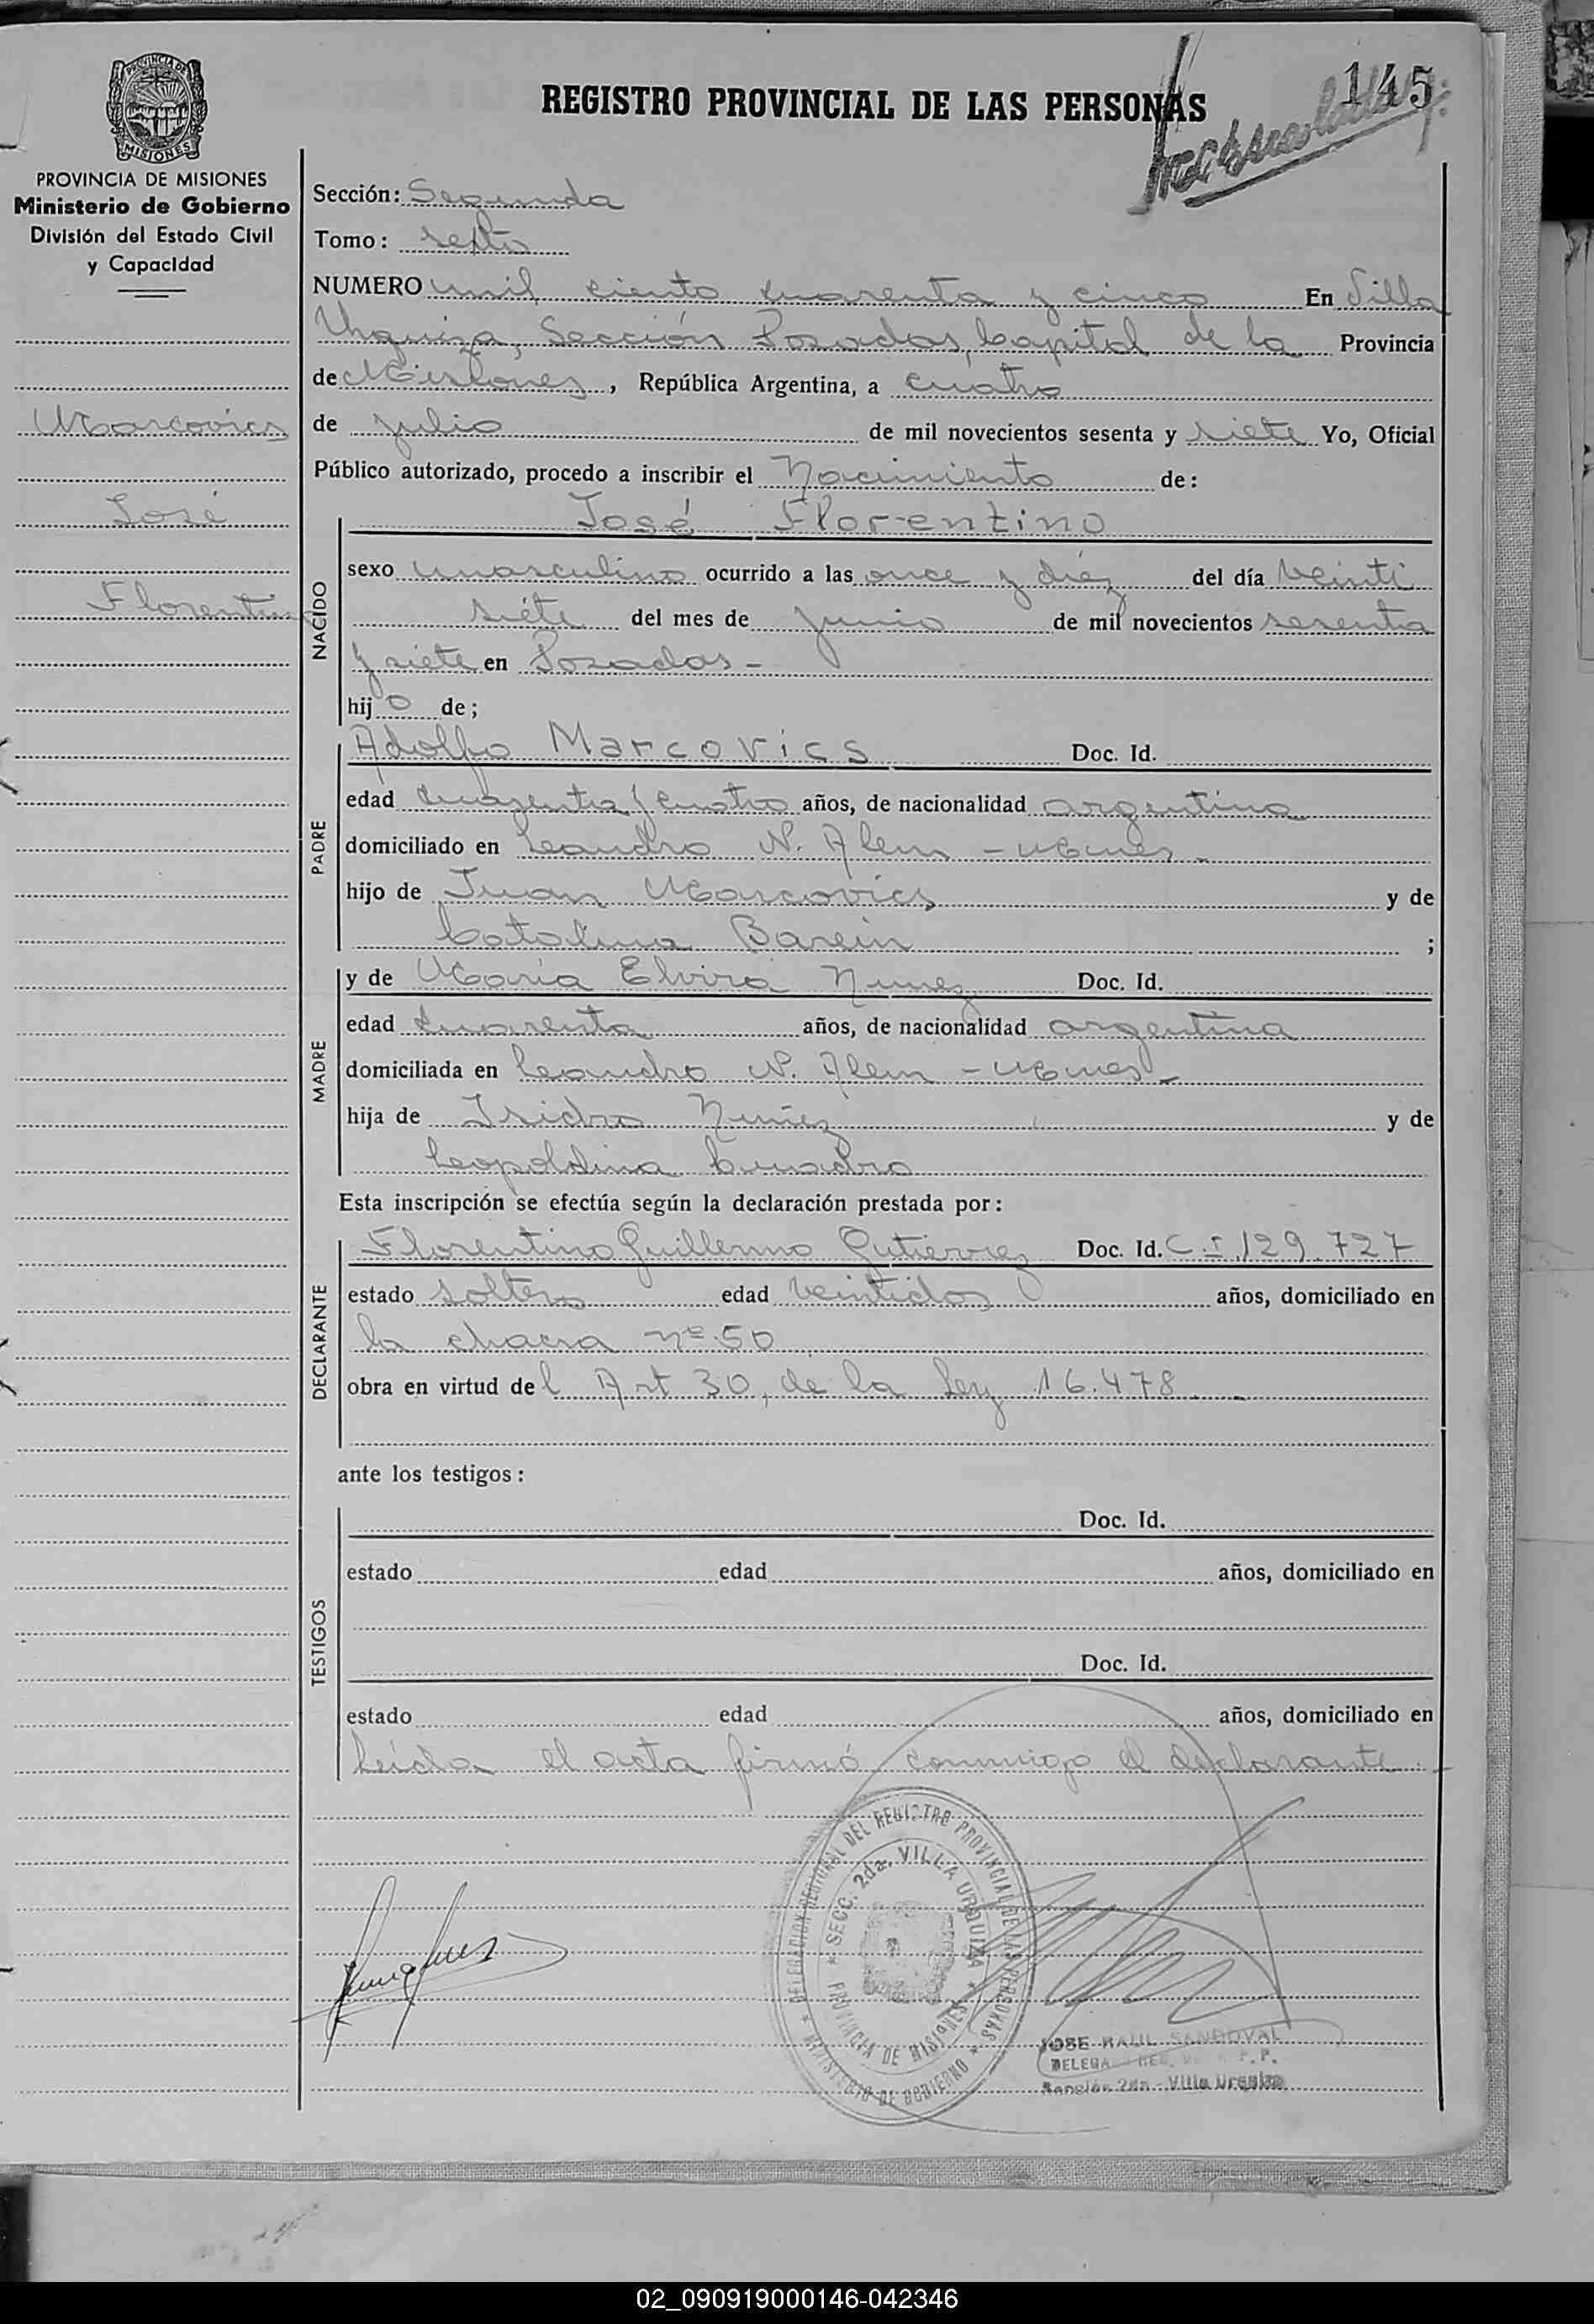 145
REGISTRO PROVINCIAL DE LAS PERSONAS
PROVINCIA DE MISIONES
PROVINCIA DE MISIONES
Ministerio de Gobierno
División del Estado Civil
y Capacidad
Marcovics
José
Florentino
Sección: Segunda
Tomo: sexto
NUMERO mil ciento cuarenta y cinco En Villa
Urquiza, Sección Posadas, Capital de la Provincia
de Misiones, República Argentina, a cuatro
de julio de mil novecientos sesenta y siete Yo, Oficial
Público autorizado, procedo a inscribir el Nacimiento de:
NACIDO
José Florentino
sexo masculino ocurrido a las once y diez del día veinti
siete del mes de junio de mil novecientos sesenta
y siete en Posadas -
hijo de;
PADRE
Adolfo Marcovics Doc. Id.
edad cuarenta y cuatro años, de nacionalidad argentina
domiciliado en Leandro N. Alem - Mnes -
hijo de Juan Marcovics y de
Catalina Barein ;
MADRE
y de María Elvira Nunez Doc. Id.
edad cuarenta años, de nacionalidad argentina
domiciliada en Leandro N. Alem - Mnes -
hija de Isidro Nuñez y de
Leopoldina Cuadro
Esta inscripción se efectúa según la declaración prestada por:
DECLARANTE
Florentino Guillermo Gutierrez Doc. Id. C.I. 129.727
estado soltero edad veintidos años, domiciliado en
la chacra nº 50
obra en virtud del Art 30, de la Ley 16.478
ante los testigos:
TESTIGOS
Doc. Id.
estado edad años, domiciliado en
Doc. Id.
estado edad años, domiciliado en
Leída el acta firmó conmigo el declarante -
DELEGACION REGIONAL DEL REGISTRO PROVINCIAL DE LAS PERSONAS
SECC. 2da. VILLA URQUIZA
PROVINCIA DE MISIONES
MINISTERIO DE GOBIERNO
JOSE RAUL SANDOVAL
Sección 2da - Villa Urquiza
02_090919000146-042346